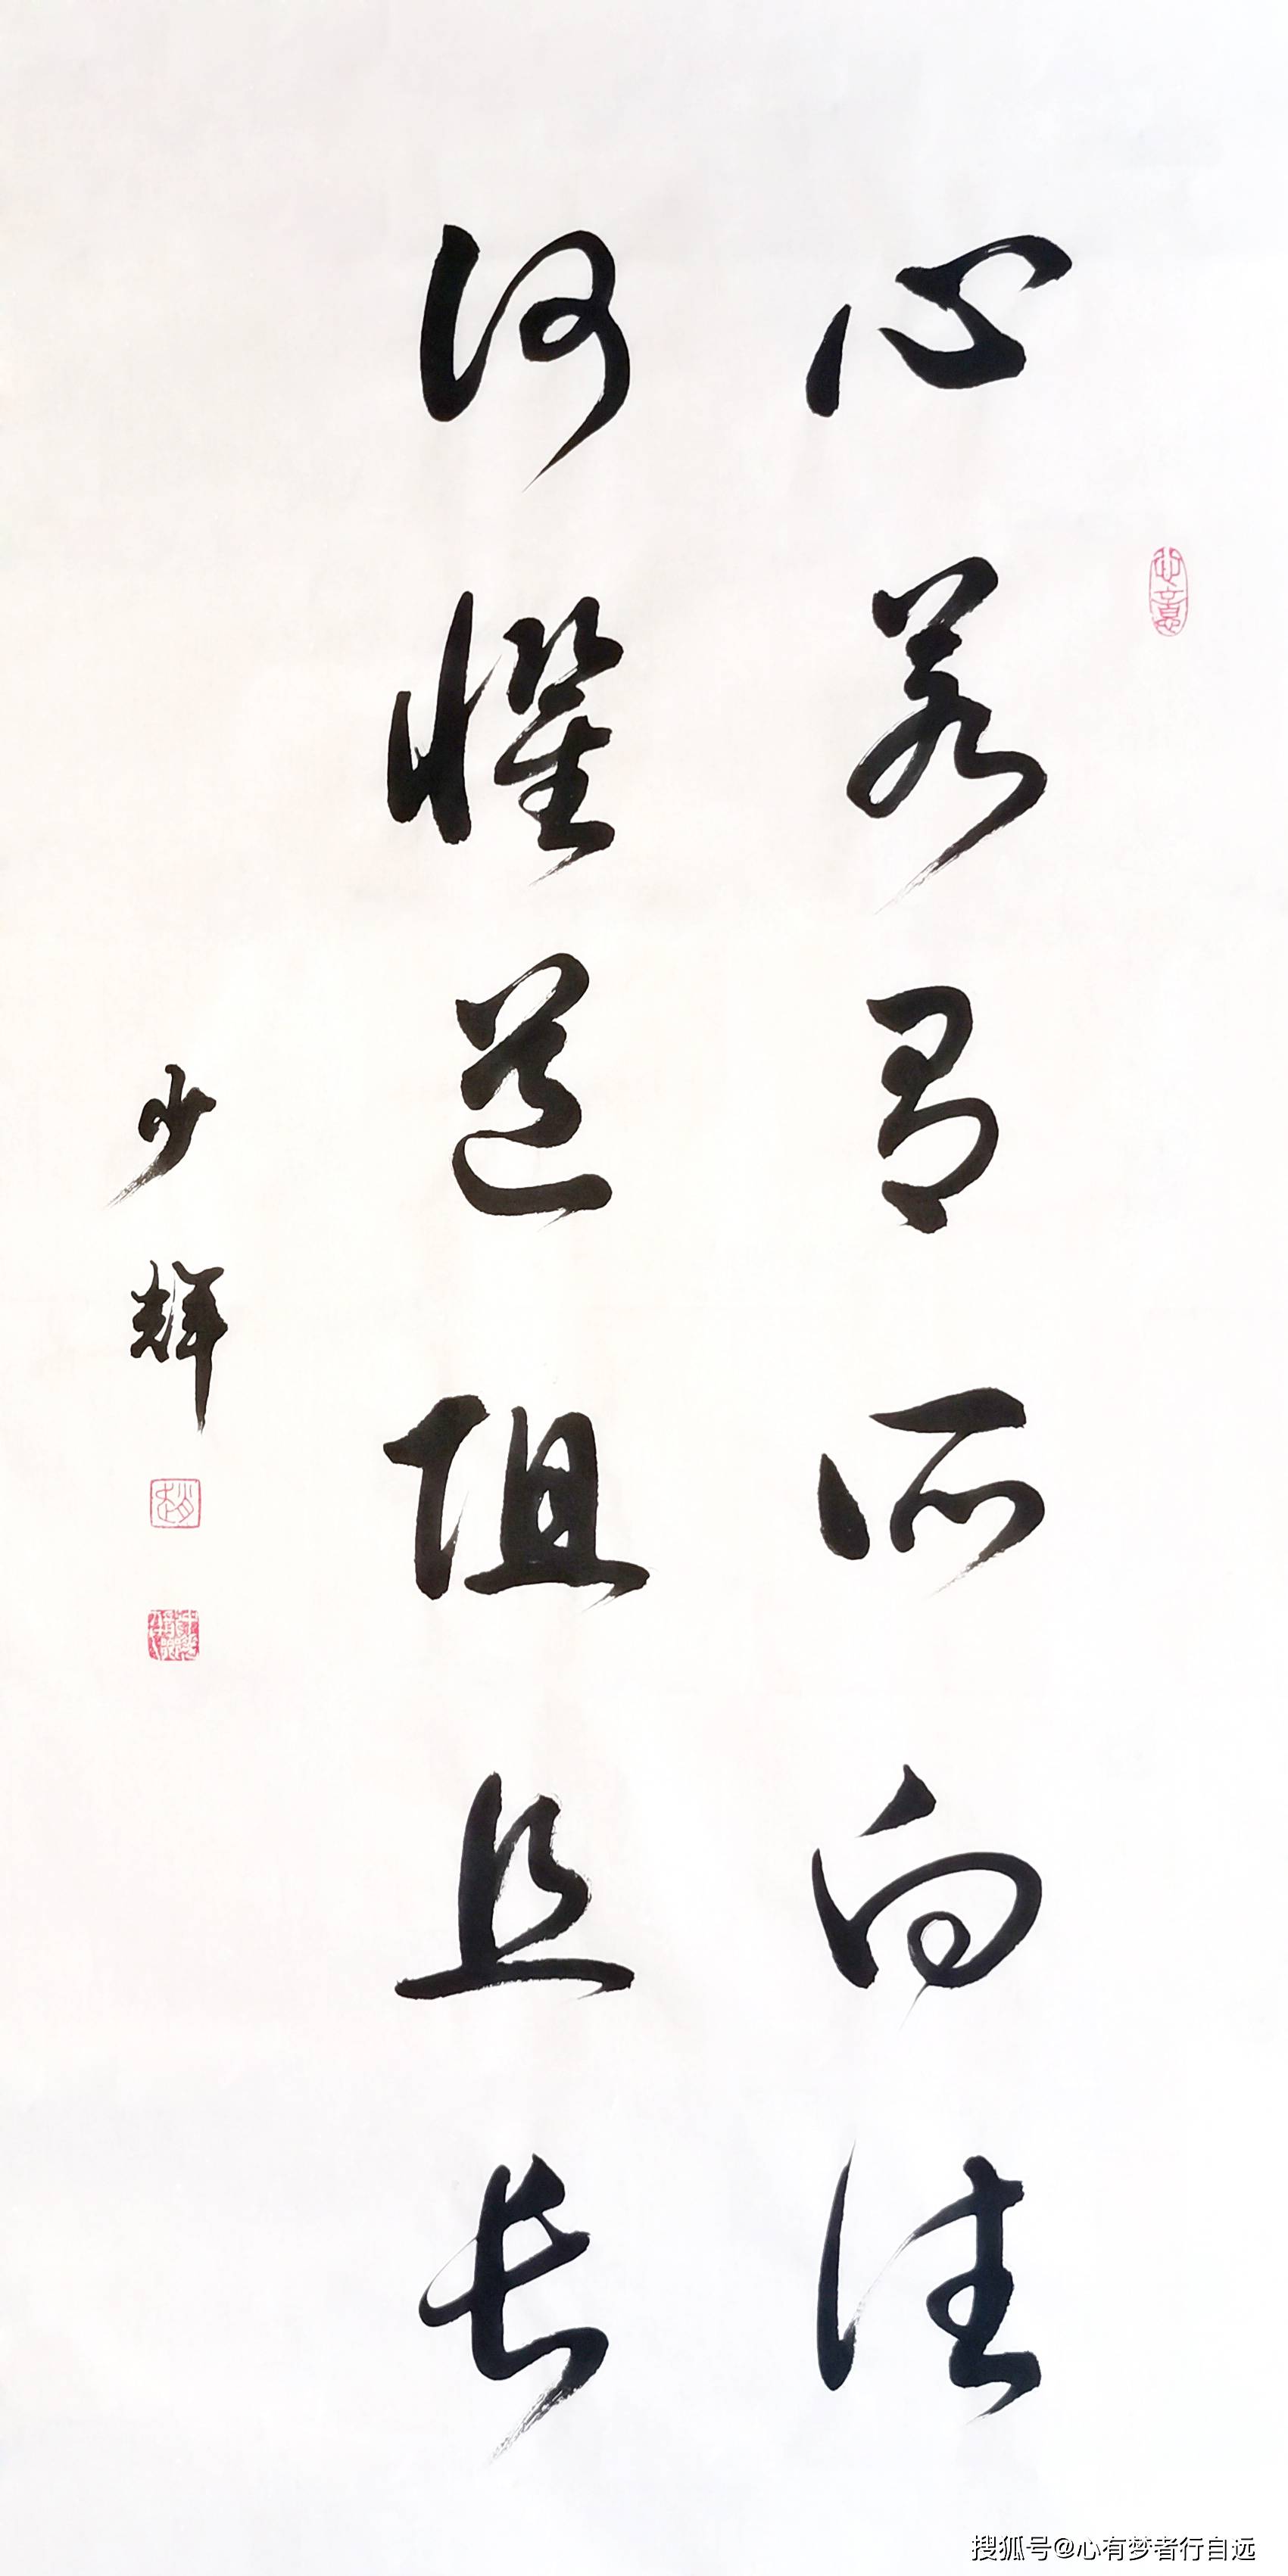 心若有所向往
何惧道阻且长
少辉
趙
搜狐号@心有梦者行自远